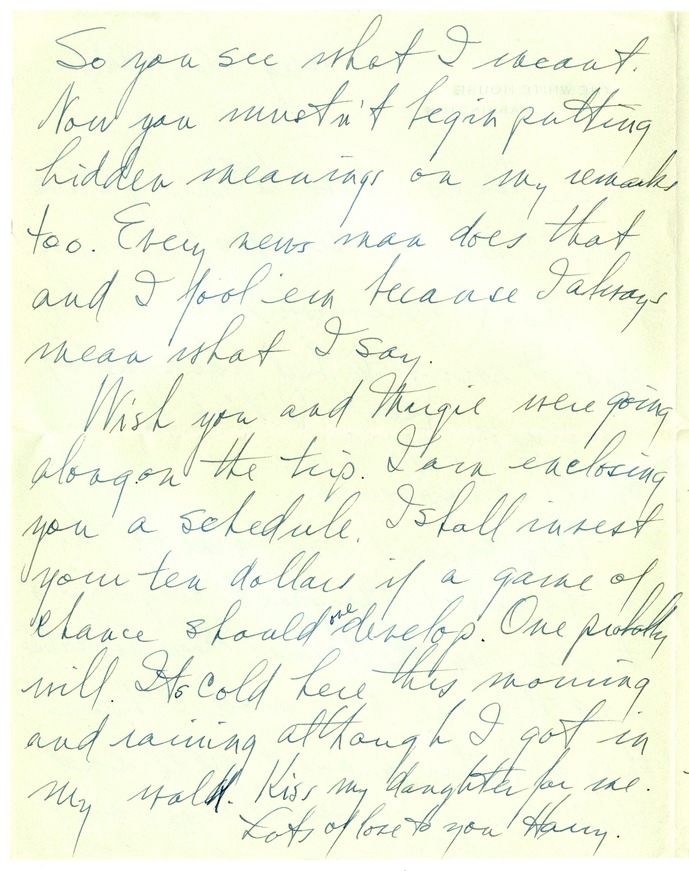 So you see what I meant.
Now you mustn't begin putting
hidden meanings on my remarks
too. Every news man does that
and I fool 'em because I always
mean what I say.
Wish you and Margie were going
along on the trip. I am enclosing
you a schedule. I shall invest
your ten dollars if a game of
chance should one develop. One probably
will. Its cold here this morning
and raining although I got in
my walk. Kiss my daughter for me.
Lots of love to you Harry.